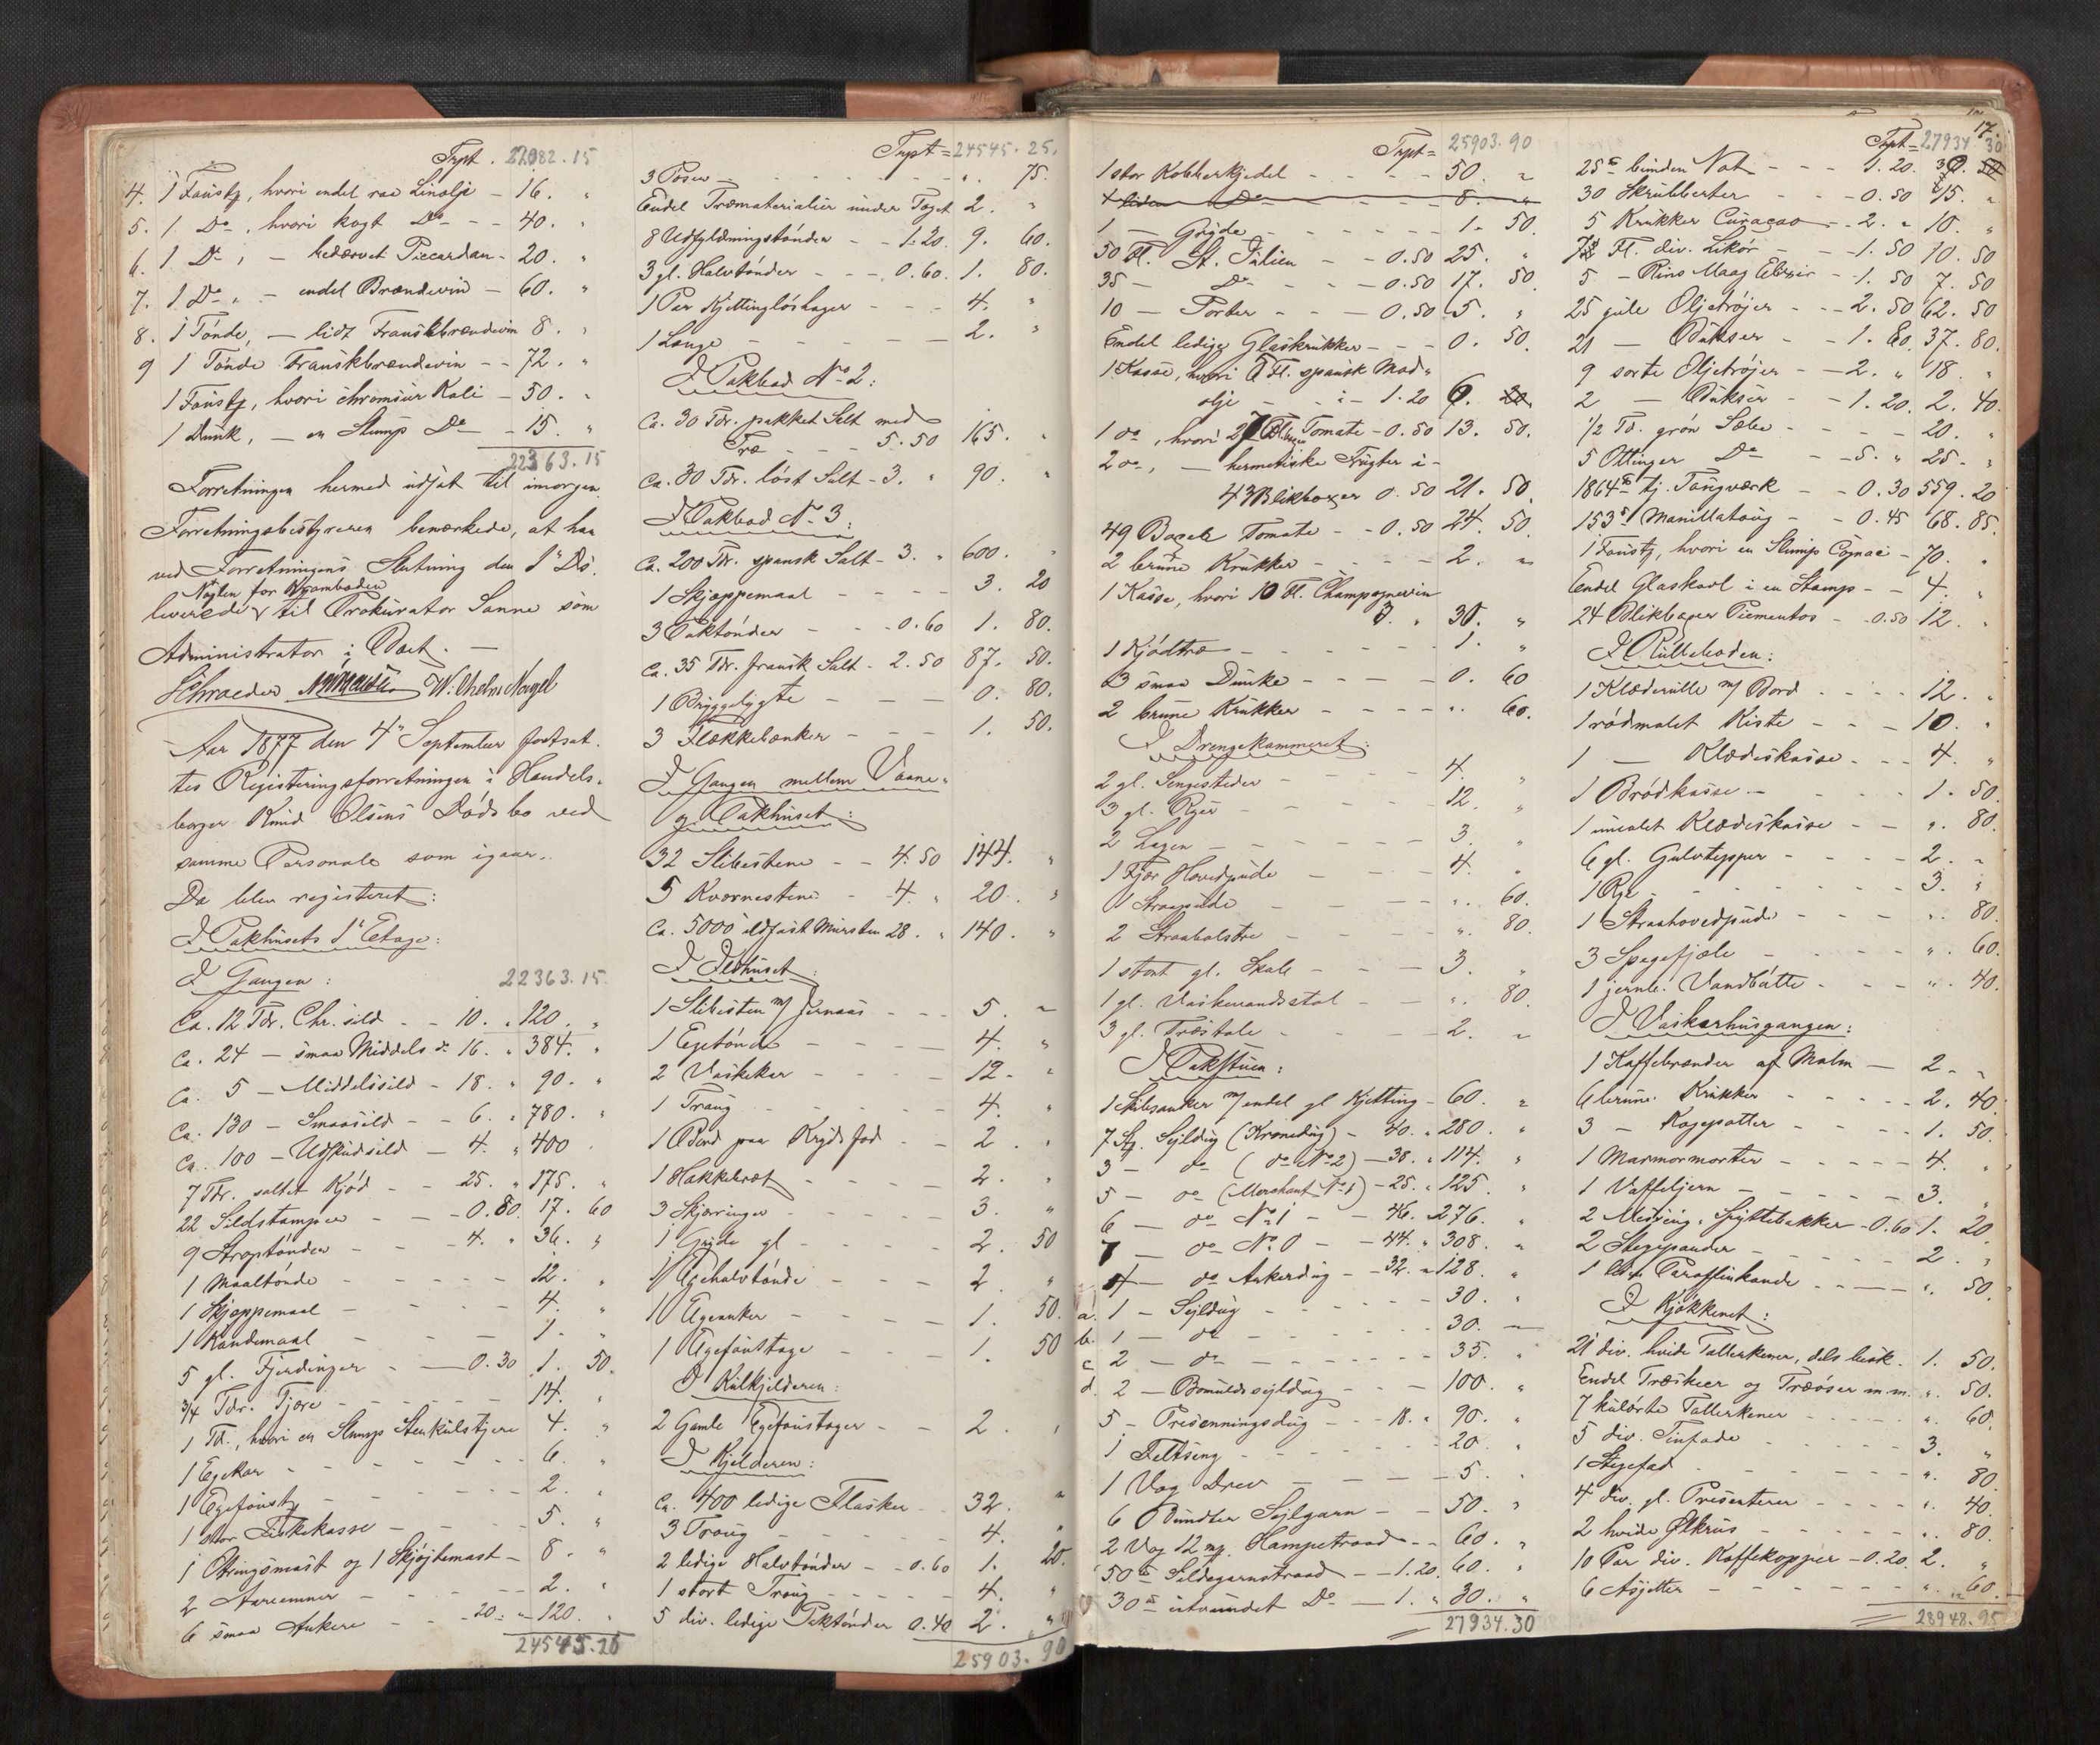 Trpt. 22082.15
4. 1 Faustg, hvori endel raa Linolje - 16. "
5. 1 Do, hvori kogt Do - - 40. "
6. 1 Do, - bedærvet Piccardan - 20. "
7. 1 Do, - endel Brændevin - 60. "
8. 1 Tønde, - lidt Franskbrændevin 8. "
9 1 Tønde Franskbrændevin - - 72. "
1 Faustg, hvori chromsur Kali - 50. "
1 Dunk, - en Slump Do - 15. "
22363.15
Forretningen hermed udsat til imorgen.
Forretningsbestyreren bemærkede, at han
ved Forretningens Slutning den 1ste Ds.
Nøglen for Kramboden
leverede til Prokurator Sanne som
Administrator i Boet. -
Schroeder Wilhelm Nagel
Aar 1877 den 4de September fortsat-
tes Registeringsforretningen i Handels-
borger Knud Olsens Dødsbo ved
samme Personale som igaar.
Da blev registeret:
I Pakhusets 1ste Etage:
I Gangen: 22363.15.
Ca. 12 Tdr. Chr. sild - - 10. " 120. "
Ca. 24 - smaa Middels do 16. " 384. "
Ca. 5 - Middelssild - 18. " 90. "
Ca. 130 - Smaasild - - 6. " 780. "
Ca. 100 - Udskudsild - 4. " 400
7 Tdr. saltet Kjød - - 25. " 175. "
22 Sildstamper - - 0.80. 17. 60
9 Straptønder - - 4. " 36. "
1 Maaltønde - - - - 12. "
1 Skjæppemaal - - - - 4. "
1 Kandemaal - - - 1. "
5 gl. Fjerdinger - - 0.30 1. 50.
3/4 Tdr. Tjære - - - - 14. "
1 Td., hvori en Slump Stenkulstjære 4. "
1 Egekar - - - - 6. "
1 Egefaustg - - - - 2. "
1 stor Fiskekasse - - - 5. "
1 Otringsmast og 1 Skjøjtemast - 8. "
2 Aareemner - - - - 2. "
6 smaa Ankere - - 20. " 120. "
24545.25
Trpt = 24545.25.
3 Poser - - - - - ". 75.
Endel Træmaterialier under Taget 2. "
8 Udfyldningstønder - - 1.20. 9. 60.
3 gl. Halvtønder - - - 0.60. 1. 80.
1 Par Kjettingløshager - - - 4. "
1 Længe - - - - - 2. "
I Pakbod No 2:
Ca. 30 Tdr. pakket Salt med
Træ - - - 5.50 165. "
Ca. 30 Tdr. løst Salt - 3. " 90. "
I Pakbod No 3:
Ca. 200 Tdr. spansk Salt - 3. " 600. "
1 Skjæppemaal - - - - 3. 20
3 Paktønder - - - 0.60 1. 80.
Ca. 35 Tdr. fransk Salt - 2.50 87. 50.
1 Bryggelygte - - - 0. 80.
3 Flækkebænker - - - 1. 50.
I Gangen mellem Vaane-
og Pakhuset:
32 Slibestene - - 4.50 144. "
5 Kværnestene - - 4. " 20. "
Ca. 5000 ildfast Mursten 28. " 140. "
I Ildhuset:
1 Slibesten m/ Jernaas - - - 5. "
1 Egetønde - - - - 4. "
2 Vaskekar - - - - 12. "
1 Traug - - - - - 4. "
1 Bord paa Krydsfod - - 2. "
1 Hakkebræt - - - - 2. "
3 Skjæringer - - - - 3. "
1 Gryde gl - - - - 2. 50
1 Egehalvtønde - - - 2. "
1 Egeanker - - - - 1. 50.
1 Egefaustage - - - 1. 50
I Kulkjelderen:
2 Gamle Egefaustager - - 2. "
I Kjelderen:
Ca. 400 ledige Flasker - - 32. "
3 Traug - - - - 4. "
2 ledige Halvtønder - - 0.60 1. 20.
1 stort Traug - - - - 4. "
5 div. ledige Paktønder 0.40 2. "
25903.90
Trpt = 25903.90
1 stor Kobberkjedel - - - - 50. "
1 liden Do - - - - 8. "
1 - Gryde - - - - - 1. 50.
50 Fl. St. Julien - - 0.50 25. "
35 - Do - - - 0.50 17. 50.
10 - Porter - - - 0.50 5. "
Endel ledige Glaskrukker - - - 0. 50.
1 Kasse, hvori Fl. spansk Mad-
olje - - - 1.20 6.
1 do, hvori 27 Tomate - 0.50 13. 50.
2 do, - hermetiske Frugter i -
43 Blikboxer 0.50 21. 50.
49 Boxer Tomate - - 0.50 24. 50.
2 brune Krukker - - - - 2. "
1 Kasse, hvori 10 Fl. Champagnevin
3. " 30. "
1 Kjødtræ - - - - 1. "
3 smaa Dunke - - - - 0. 60
2 brune Krukker - - - - ". 60.
I Drengekammeret:
2 gl. Sengesteder - - - - 4. "
3 gl. Ryer - - - - - 12. "
2 Lagen - - - - - - 3. "
1 Fjær Hovedpude - - - 4. "
1 Straapude - - - - ". 60.
2 Straabolstre - - - - ". 80.
1 stort gl. Skab - - - 3. "
1 gl. Vaskevandsstol - - ". 80.
3 gl. Træstole - - - - 2. "
I Pakstuen:
1 Skibsanker m/ endel gl Kjetting - 60. "
7 St. Sejldug (Kronedug) - 40. " 280. "
3 - do (do No 2) - 38. " 114. "
5 - do (Merchant No 1) - 25. " 125. "
6 - do No 1 - - 46. " 276. "
7 - do No 0 - - 44. " 308. "
4 - do Ankerdug - - 32. " 128. "
a. 1 - Sejldug - - - - 30. "
b. 1 - do - - - - - 30. "
c. 2 - do - - - - - 35. "
d. 2 - Bomuldssejldug - - - 100. "
5 - Presenningsdug - - - 18. " 90. "
1 Feltseng - - - - - 20. "
1 Vog Drev - - - - 5. "
6 Bundter Sejlgarn - - 50. "
2 Vog 12 mg. Hampetraad - - 60. "
50 Sildegarnstraad - - 1.20. 60. "
30 utvundet Do - 1. " 30. "
27934.30
17.
Trpt = 27934.30
25 bunden Not - - - 1.20. 30.
30 Skrubberter - - - 0.50 15. "
5 Krukker Curacao - - 2. " 10. "
7 Fl. div. Likør - - 1.50 10. 50
5 - Rins Maag Elixir - 1.50 7. 50
25 gule Oljetrøjer - - - 2.50 62. 50
21 - Buxser - - 1.80. 37. 80.
9 sorte Oljetrøjer - - 2. " 18. "
2 - Buxser - - 1.20. 2. 40.
1/2 Td. grøn Sæbe - - - - 20. "
5 Ottinger Do - - 5. " 25. "
1864 tj. Taugværk - - 0.30 559. 20
153 Manillatoug - - 0.45 68. 85
1 Faustg, hvori en Slump Cognac - 70. "
Endel Glaskavl i en Stamp - - 4. "
24 Blikboxer Piementos - 0.50 12. "
I Rulleboden:
1 Klæderulle m/ Bord - - - - 12. "
1 rødmalet Kiste - - - - 10. "
1 - Klædeskasse - - - 4. "
1 Brødkasse - - - - 1. 50.
1 umalet Klædeskasse - - ". 80.
6 gl. Gulvtepper - - - - 2. "
1 Rye - - - - - - - 3. "
1 Straahovedpude - - - ". 80.
3 Spegefjæle - - - - ". 60.
1 jernb. Vandbøtte - - - ". 40.
I Vaskerhusgangen:
1 Kaffebrænder af Malm - 2. "
6 brune Krukker - - - - 2. 40.
3 - Kagepotter - - - - 1. 50.
1 Marmormorter - - - - 4. "
1 Vaffeljern - - - - - 3. "
2 Messing-Spyttebakker - 0.60 1. 20
2 Stegepander - - - - 2. "
1 liden Paraffinkande - - - ". 50.
I Kjøkkenet:
21 div. hvide Tallerkener, dels besk. 1. 50.
Endel Træskeer og Træøser m.m. ". 50.
7 kulørte Tallerkener - - - ". 60.
5 div. Tinfade - - - - 3. "
1 Stegefad - - - - - ". 80.
4 div. gl. Presenterer - - - ". 40.
2 hvide Ølkrus - - - - ". 80.
10 Par div. Kaffekopper - 0.20. 2. "
6 Asjetter - - - - - ". 60.
28948.95